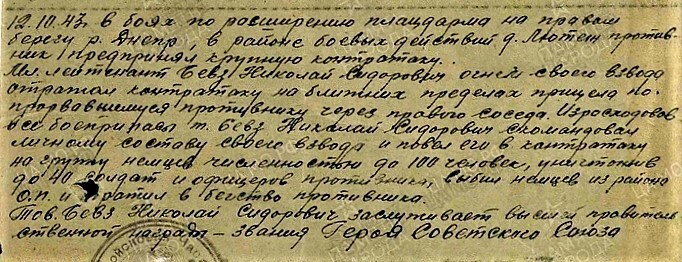 12.10.43г. в боях по расширению плацдарма на правом
берегу р. Днепр, в районе боевых действий д. Лютеж против-
ник предпринял крупную контратаку.
Мл. лейтенант Бевз Николай Сидорович огнем своего взвода
отражал контратаку на ближних пределах прицела по-
прорвавшемуся противнику через правого соседа. Израсходовав
все боеприпасы т. Бевз Николай Сидорович скомандовал
личному составу своего взвода и повел его в контратаку
на группу немцев численностью до 100 человек, уничтожив
до 40 солдат и офицеров противника, выбил немцев из района
О.П. и обратил в бегство противника.
Тов. Бевз Николай Сидорович заслуживает высшей правитель
ственной награды – звания Героя Советского Союза